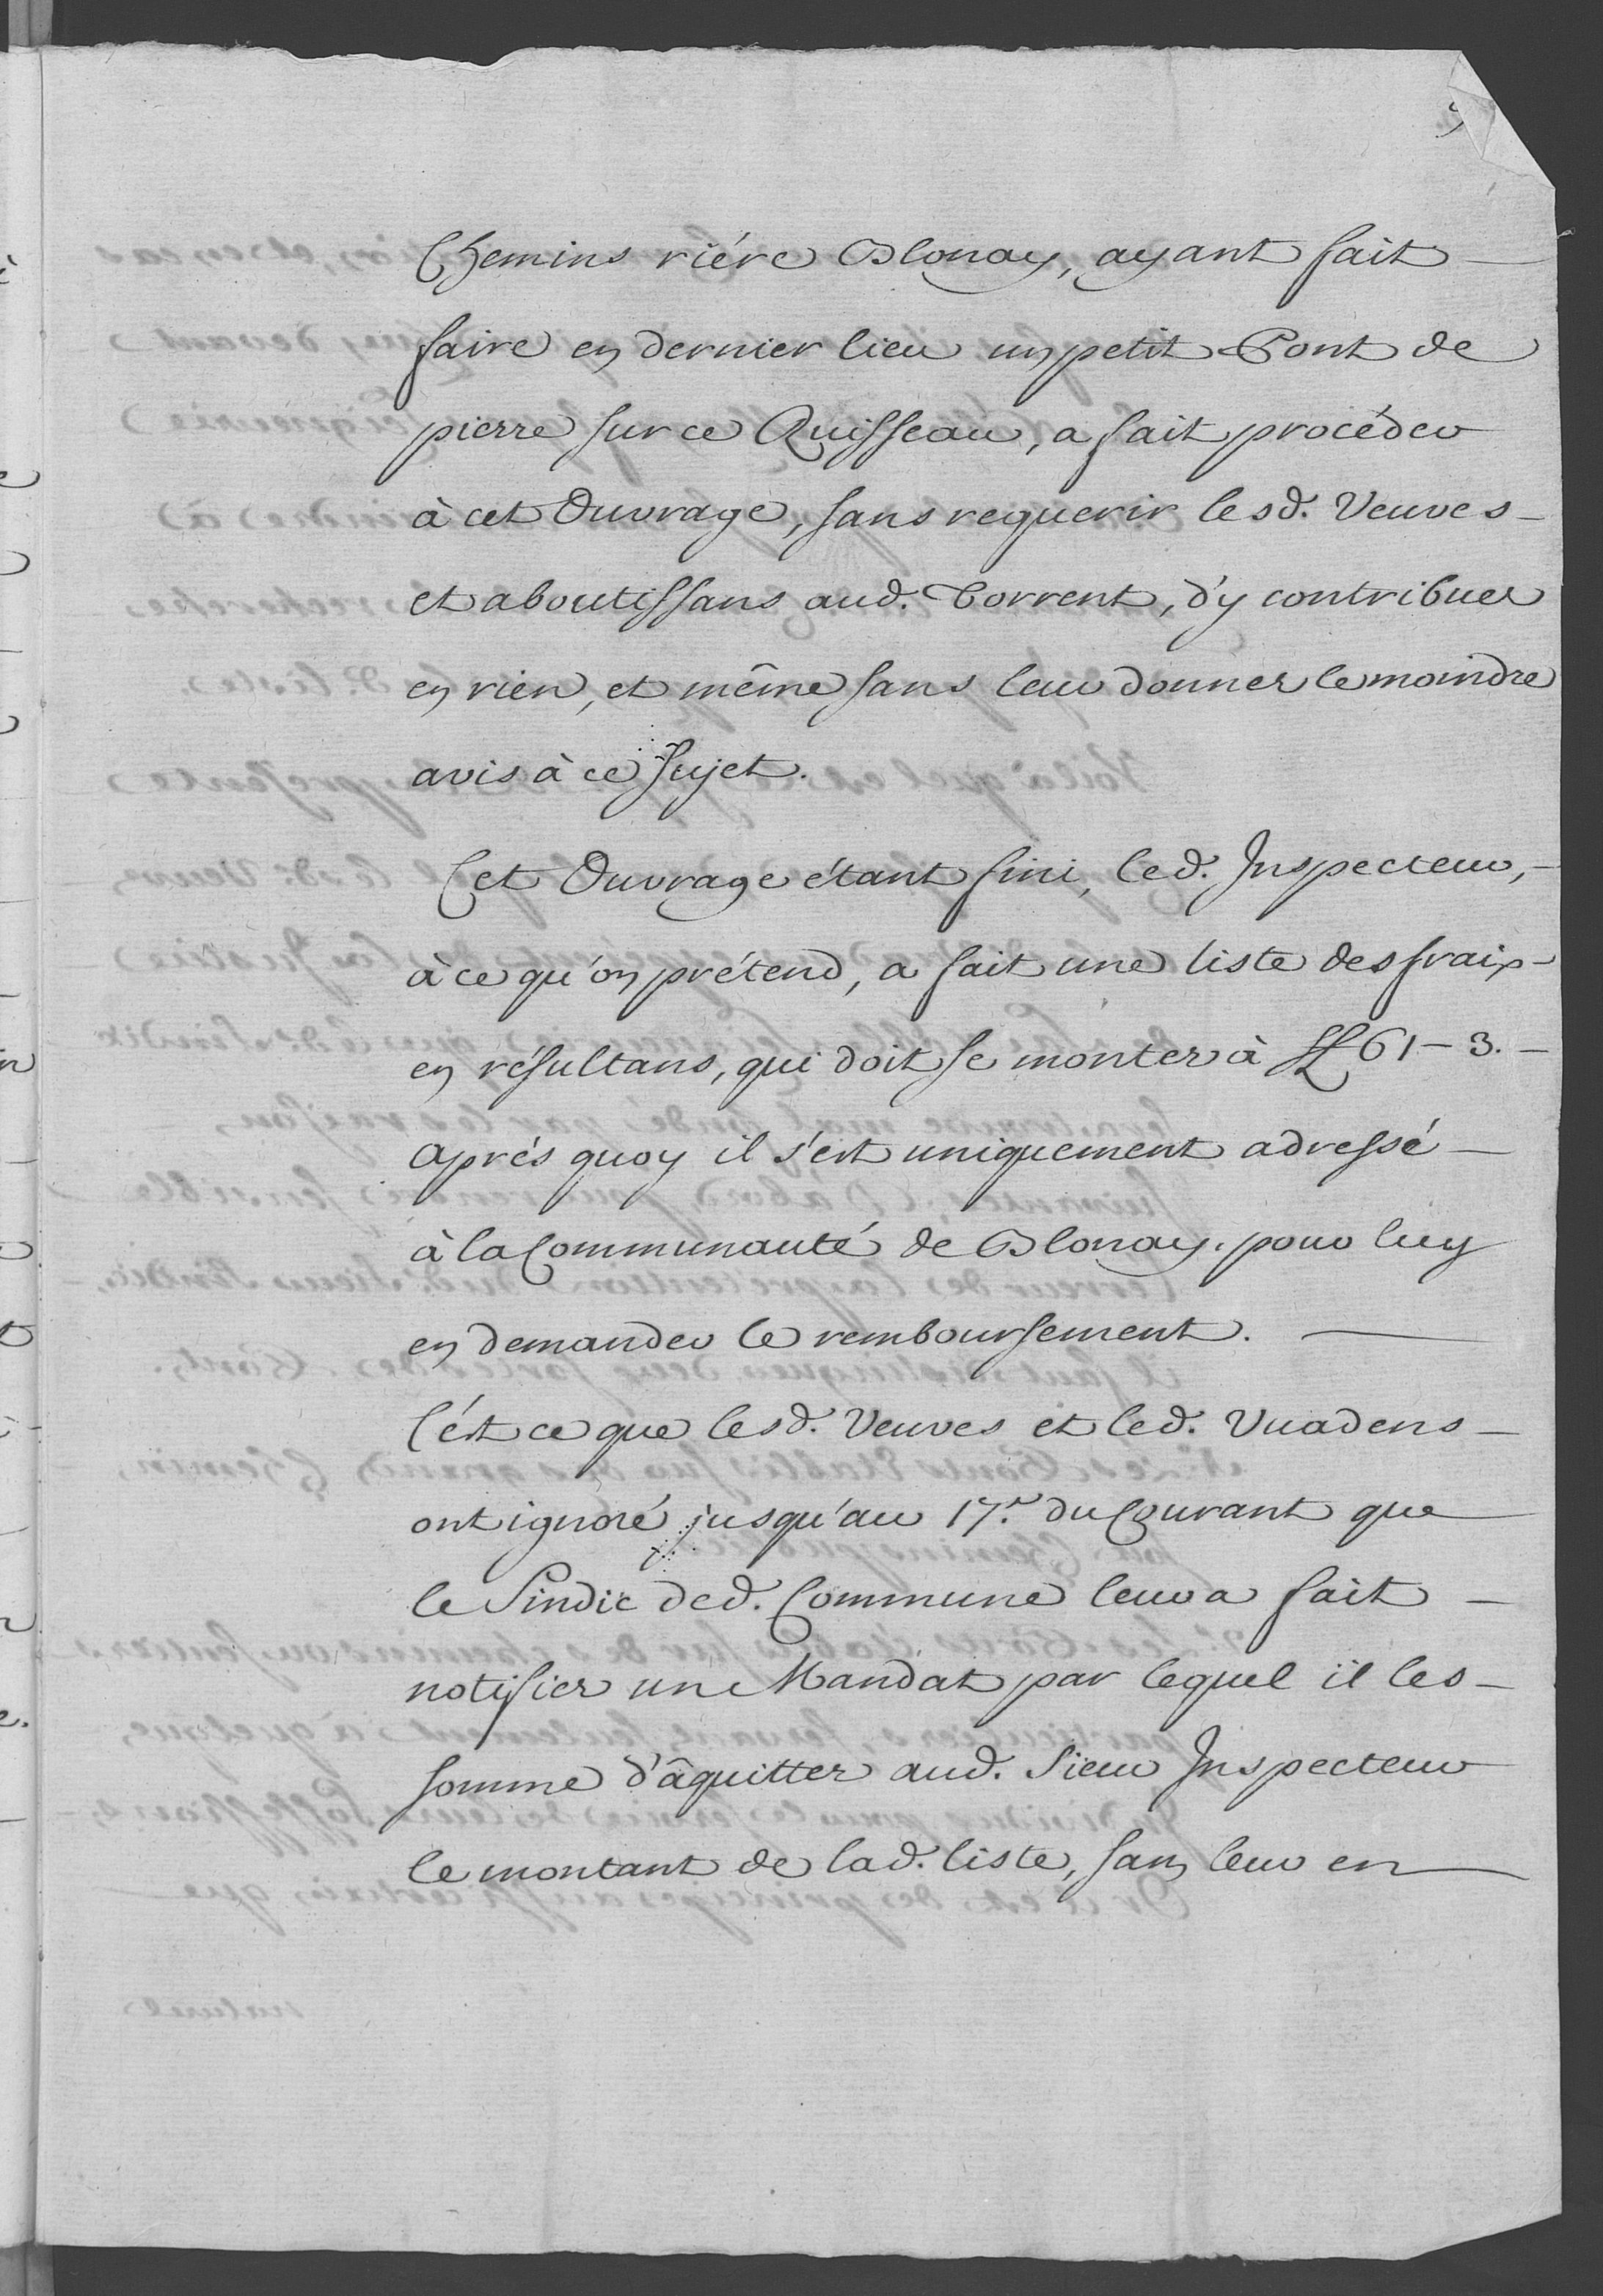 Chemins riére Blonay, ayant fait
faire en dernier lieu un petit Pont de
pierre sur ce Ruisseau, a fait procéder
à cet Ouvrage, sans requerir lesd. Veuves
et aboutissans aud. Torrent, d'y contribuer
en rien, et même sans leur donner le moindre
avis à ce sujet.
Cet Ouvrage étant fini, led. Inspecteur,
à ce qu'on prétend, a fait une liste des fraix
en résultans, qui doit se monter à LL 61 - 3.
Après quoy il s'est uniquement adressé
à la Communauté de Blonay, pour luy
en demander le remboursement.
C'ést ce que lesd. Veuves et led. Vuadens
ont ignoré jusqu'au 17.e du Courant que
le Sindic ded. Commune leur a fait
notifier un Mandat par lequel il les
somme d'âquitter aud. Sieur Inspecteur
le montant de lad. liste, sans leur en